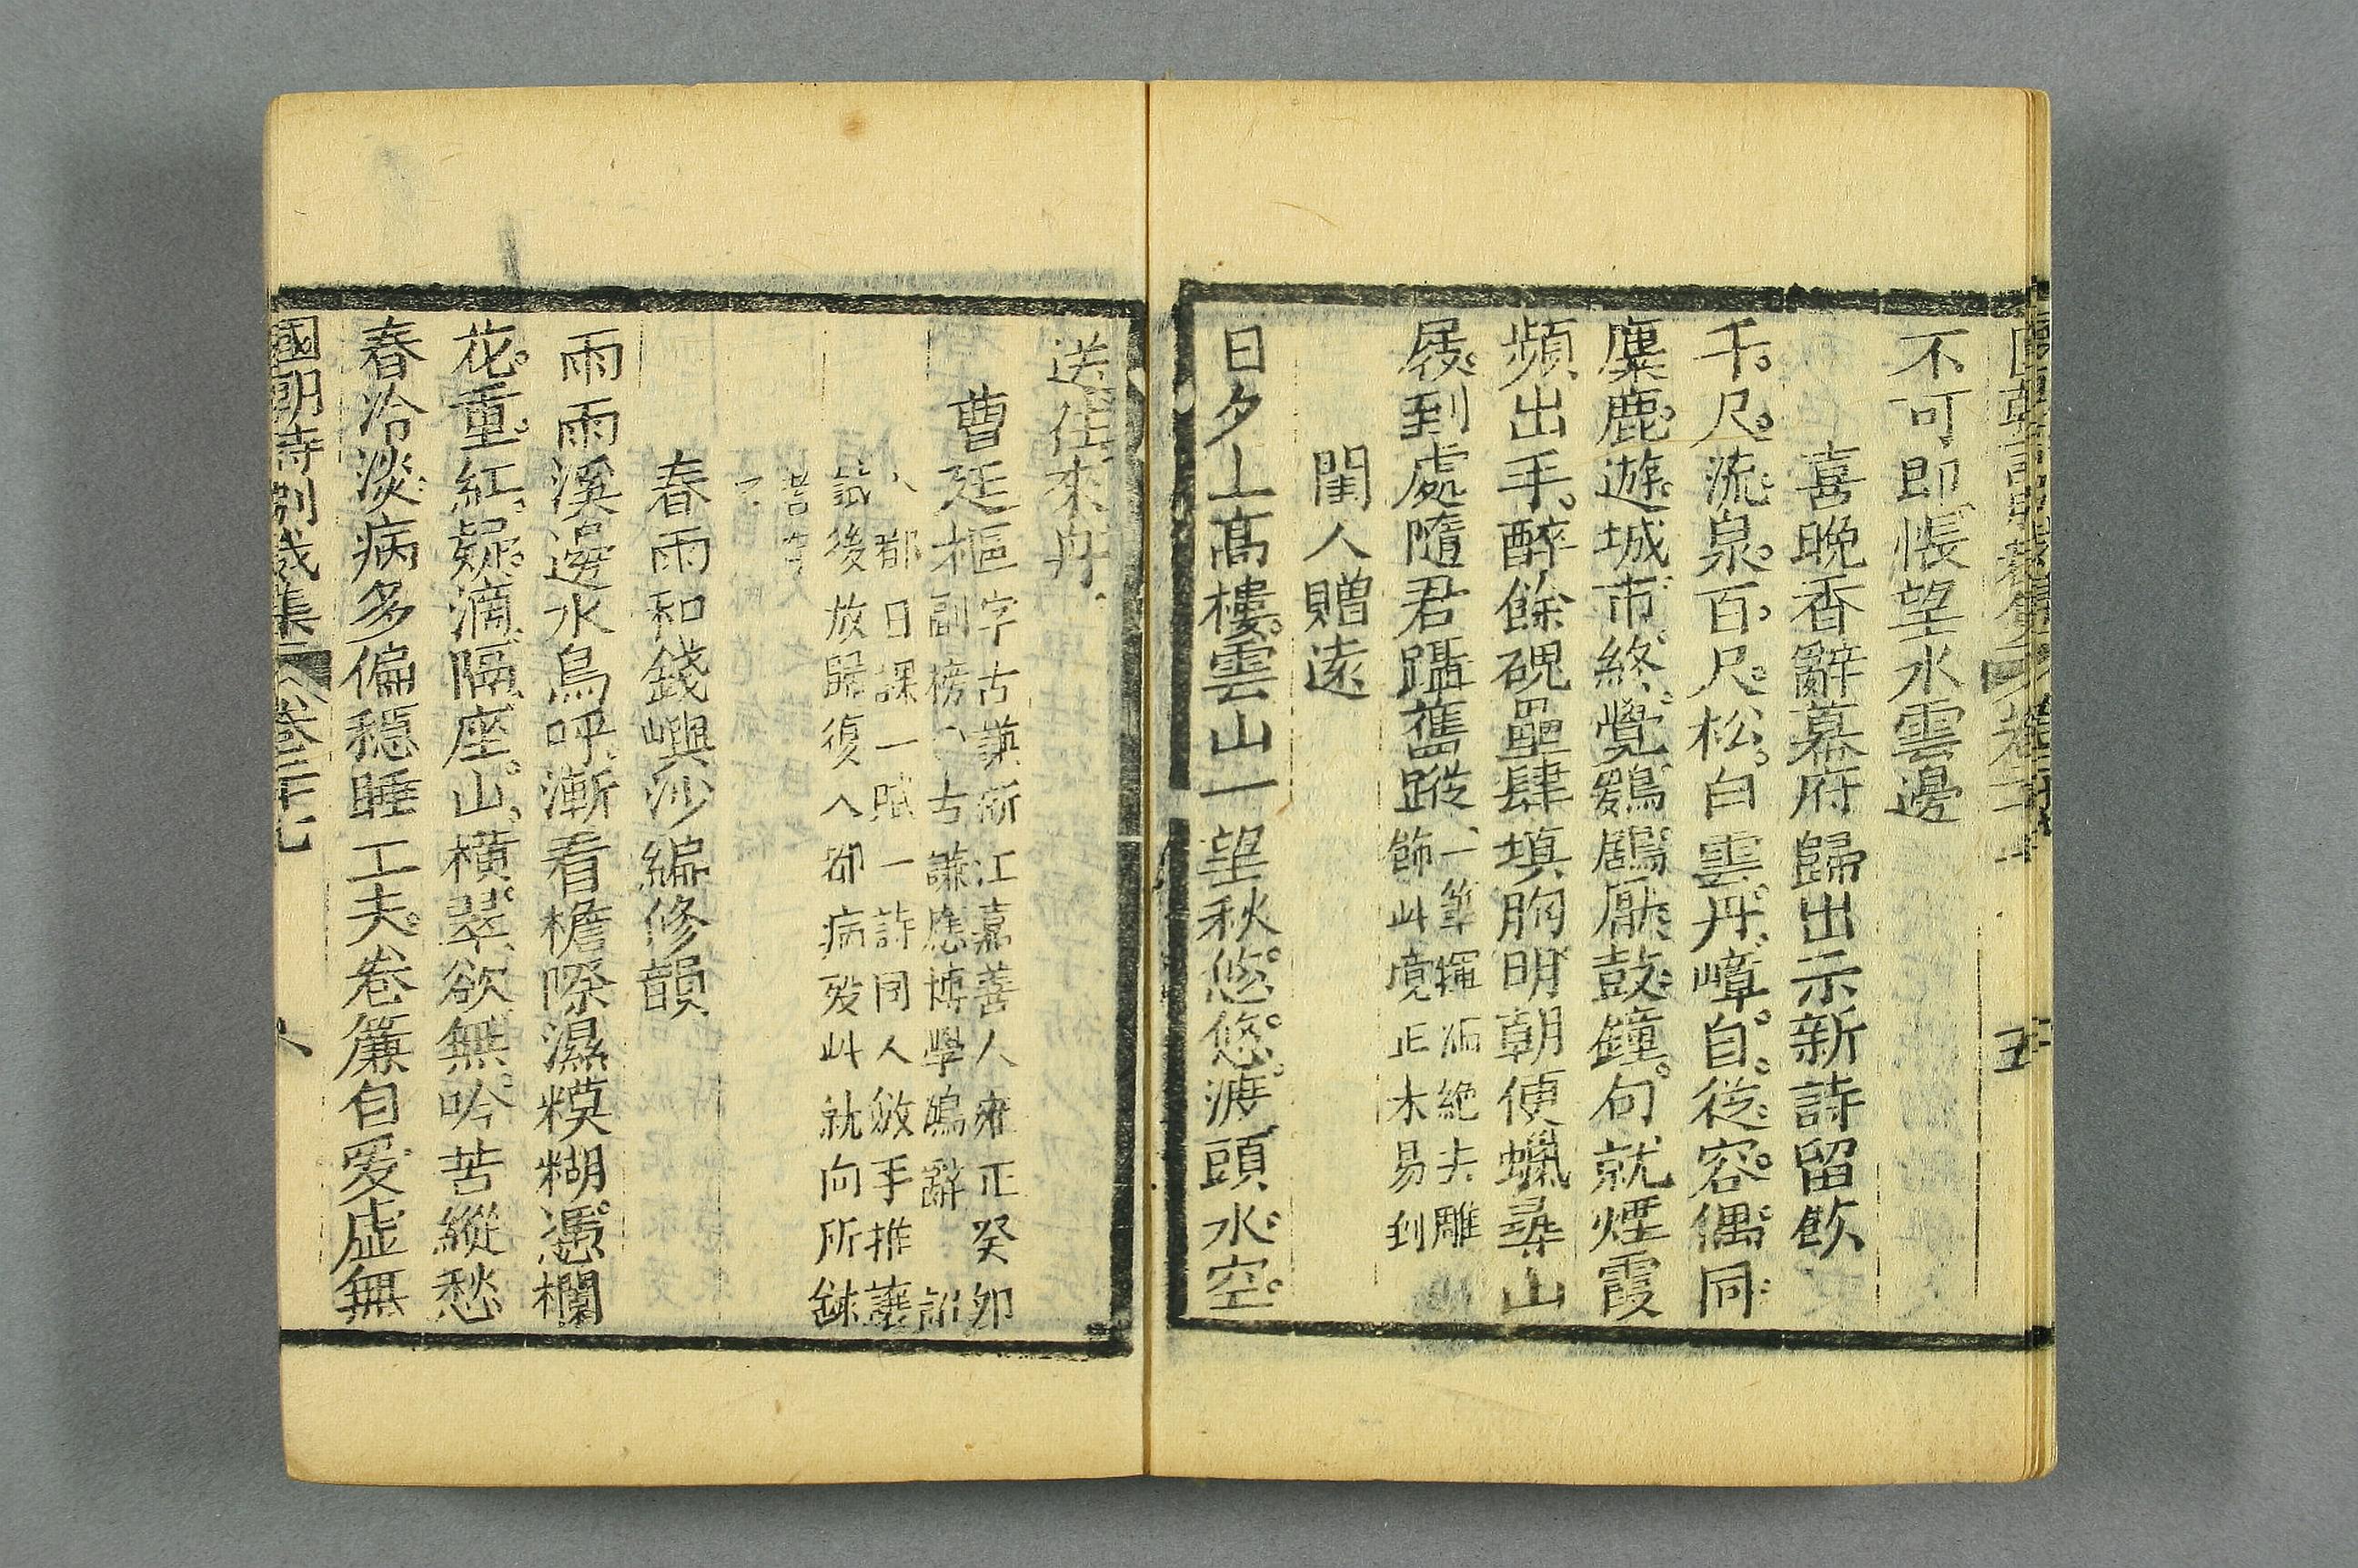 不可即悵望水雲邊
喜晚香辭幕府歸出示新詩留飲
千尺流泉百尺松白雲丹嶂自從容偶同
麋鹿遊城市終覺鷄鶋厭鼓鐘句就煙霞
頻出手醉餘磈壘肆填胸明朝便蠟尋山
屐到處隨君躡舊蹤一筆揮洒絶去雕
飾此境正未易到
閨人贈遠
日夕上髙樓雲山一望秋悠悠渡頭水空
送往來舟
曹廷樞字古謙浙江嘉善人雍正癸卯
副榜古謙應博學鴻辭詔
入都日課一賦一詩同人斂手推讓
試後放歸復入都病歿此就向所錄
春雨和錢嶼沙編修韻
雨雨溪邊水鳥呼漸看檐際濕糢糊憑欄
花重紅疑滴隔座山橫翠欲無吟苦縱愁
春冷淡病多偏穩睡工夫卷簾自愛虛無
國朝詩別裁集 卷三十七